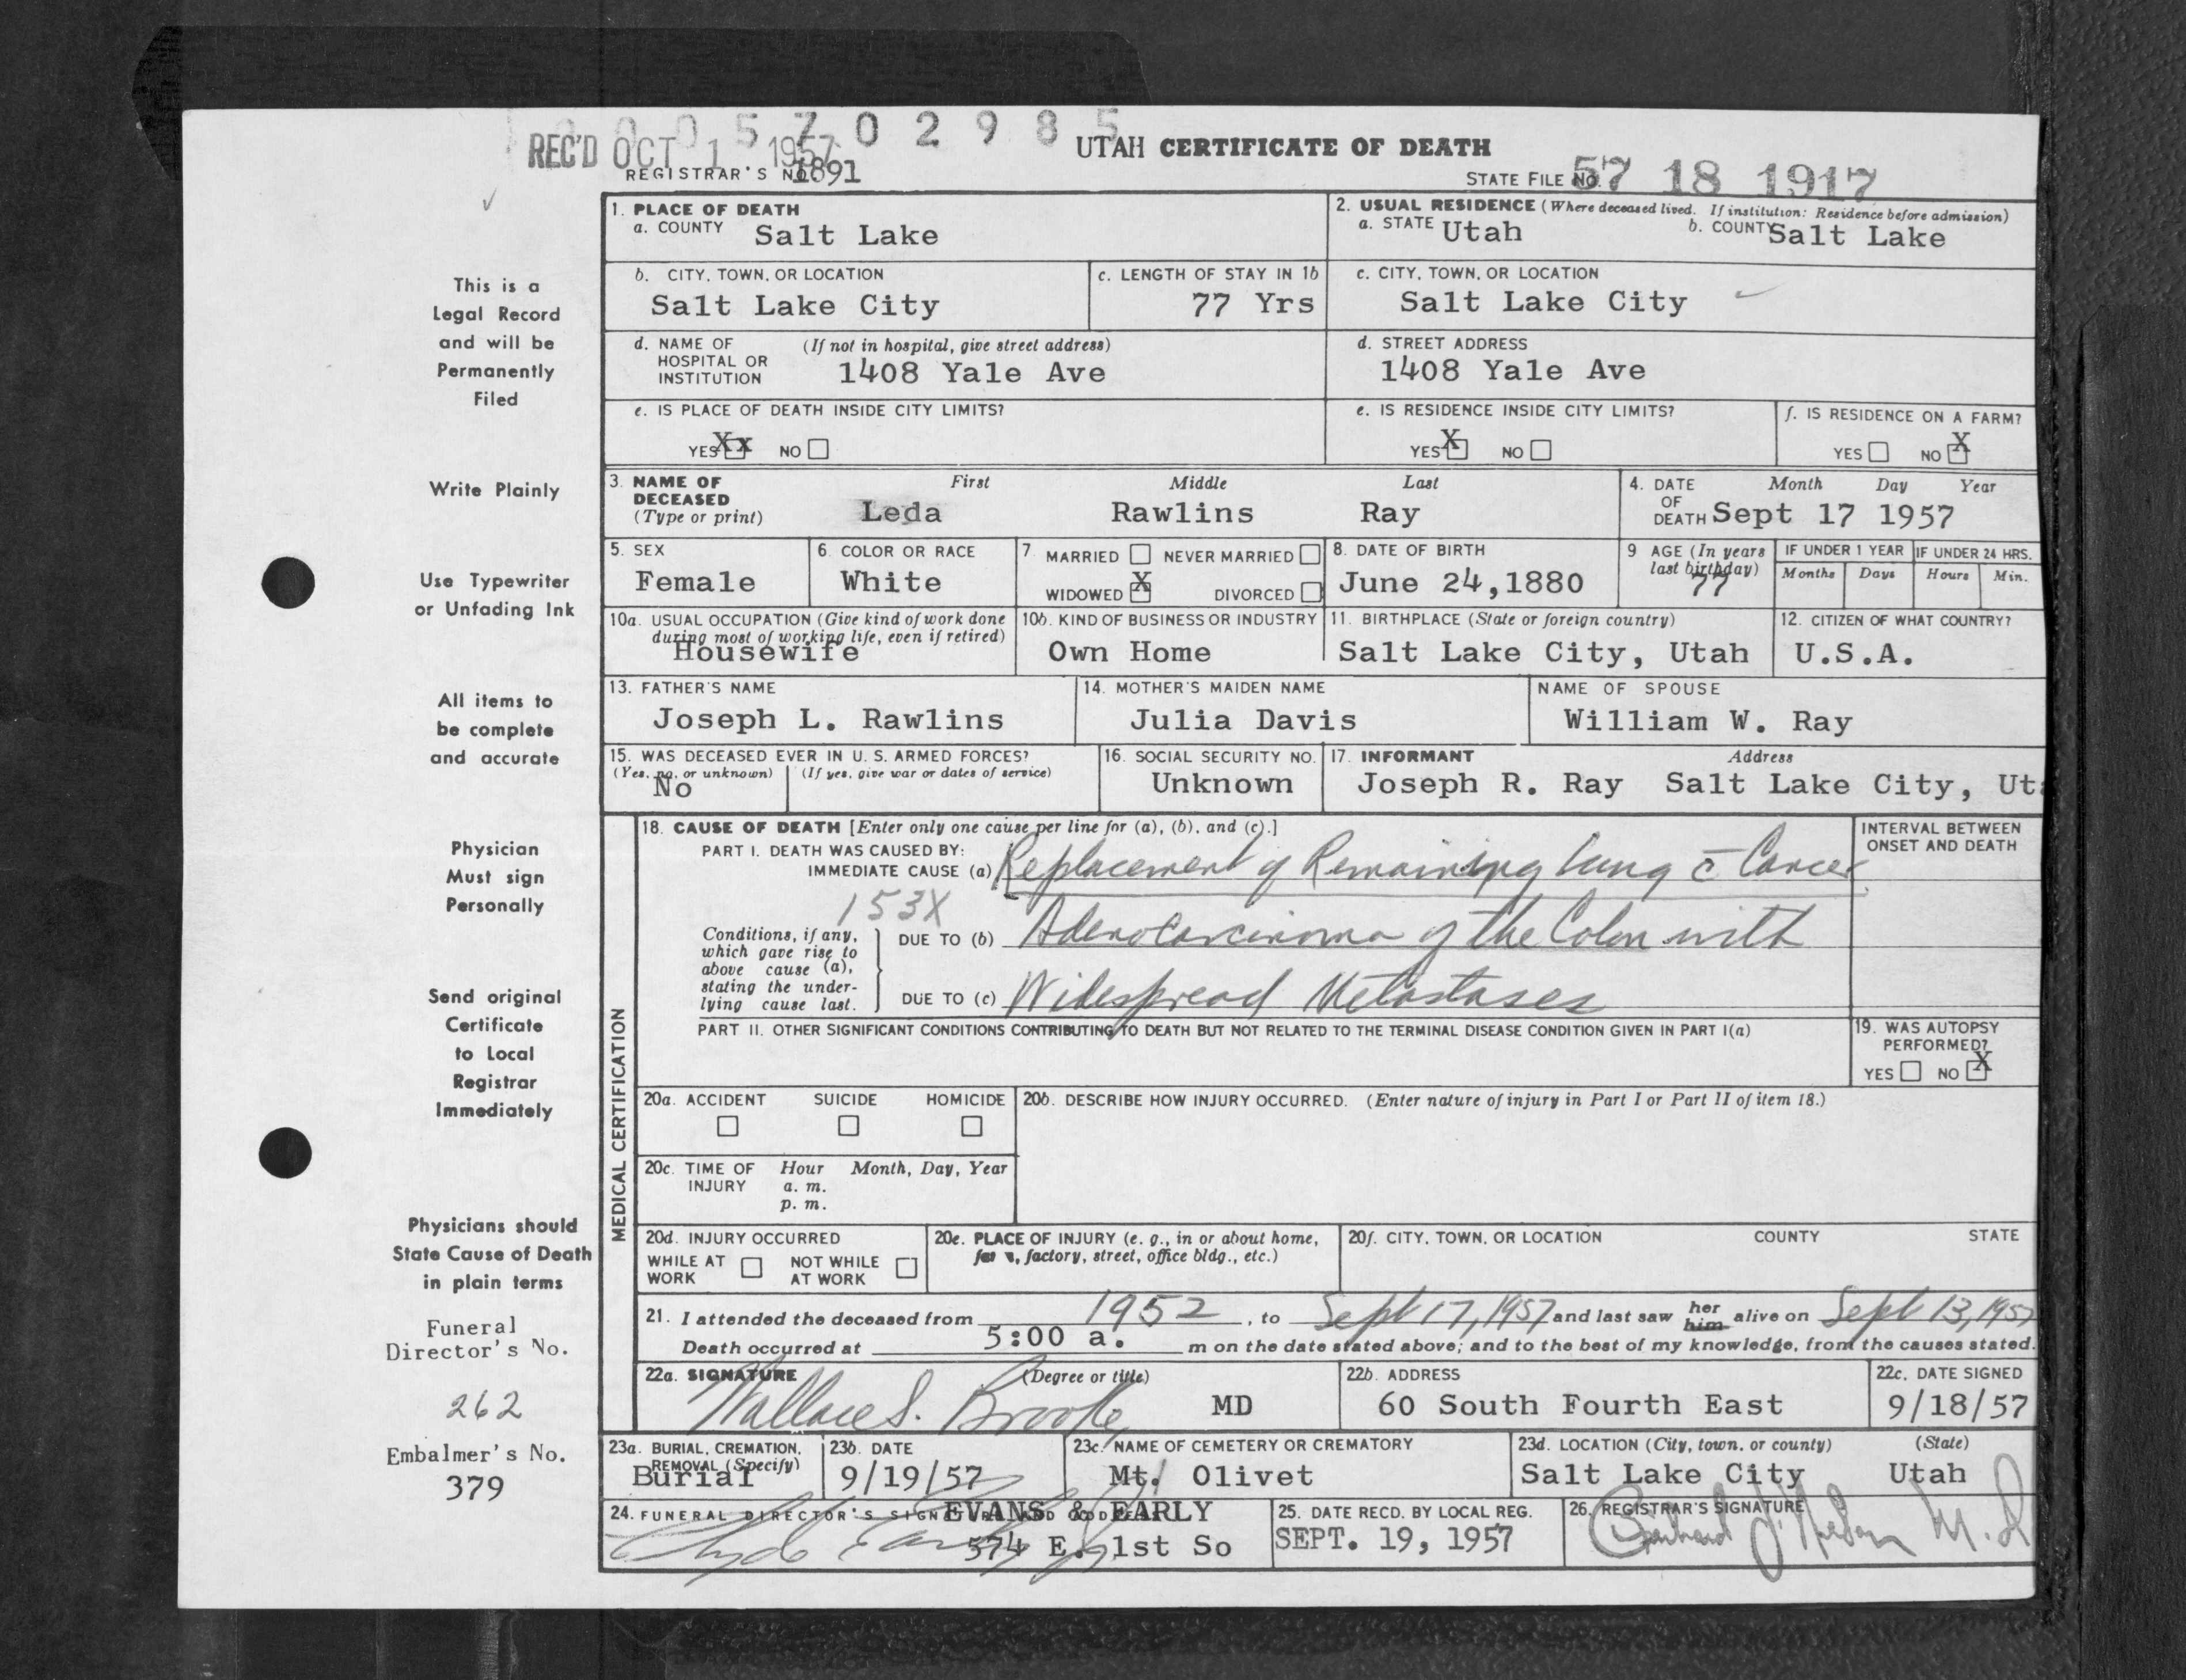 0 0 5 7 0 2 9 8 5
REC'D OCT 1 1957
UTAH CERTIFICATE OF DEATH
REGISTRAR'S NO. 1891
STATE FILE NO. 57 18 1917
1. PLACE OF DEATH
a. COUNTY Salt Lake
2. USUAL RESIDENCE (Where deceased lived. If institution: Residence before admission)
a. STATE Utah b. COUNTY Salt Lake
This is a
Legal Record
and will be
Permanently
Filed
b. CITY, TOWN, OR LOCATION
Salt Lake City
c. LENGTH OF STAY IN 1b
77 Yrs
c. CITY, TOWN, OR LOCATION
Salt Lake City
d. NAME OF HOSPITAL OR INSTITUTION (If not in hospital, give street address)
1408 Yale Ave
d. STREET ADDRESS
1408 Yale Ave
e. IS PLACE OF DEATH INSIDE CITY LIMITS?
YES Xx NO
e. IS RESIDENCE INSIDE CITY LIMITS?
YES X NO
f. IS RESIDENCE ON A FARM?
YES NO X
Write Plainly
3. NAME OF DECEASED (Type or print)
First Middle Last
Leda Rawlins Ray
4. DATE OF DEATH Month Day Year
Sept 17 1957
Use Typewriter
or Unfading Ink
5. SEX
Female
6. COLOR OR RACE
White
7. MARRIED NEVER MARRIED
WIDOWED X DIVORCED
8. DATE OF BIRTH
June 24,1880
9 AGE (In years last birthday)
77
IF UNDER 1 YEAR IF UNDER 24 HRS.
Months Days Hours Min.
10a. USUAL OCCUPATION (Give kind of work done during most of working life, even if retired)
Housewife
10b. KIND OF BUSINESS OR INDUSTRY
Own Home
11. BIRTHPLACE (State or foreign country)
Salt Lake City, Utah
12. CITIZEN OF WHAT COUNTRY?
U.S.A.
All items to
be complete
and accurate
13. FATHER'S NAME
Joseph L. Rawlins
14. MOTHER'S MAIDEN NAME
Julia Davis
NAME OF SPOUSE
William W. Ray
15. WAS DECEASED EVER IN U. S. ARMED FORCES?
(Yes, no, or unknown) (If yes, give war or dates of service)
No
16. SOCIAL SECURITY NO.
Unknown
17. INFORMANT Address
Joseph R. Ray Salt Lake City, Uta
Physician
Must sign
Personally
MEDICAL CERTIFICATION
18. CAUSE OF DEATH [Enter only one cause per line for (a), (b), and (c).]
INTERVAL BETWEEN ONSET AND DEATH
PART I. DEATH WAS CAUSED BY:
IMMEDIATE CAUSE (a) Replacement of Remaining lung c̄ Cancer
153X
Conditions, if any, which gave rise to above cause (a), stating the underlying cause last.
DUE TO (b) Adenocarcinoma of the Colon with
DUE TO (c) Widespread Metastases
Send original
Certificate
to Local
Registrar
Immediately
PART II. OTHER SIGNIFICANT CONDITIONS CONTRIBUTING TO DEATH BUT NOT RELATED TO THE TERMINAL DISEASE CONDITION GIVEN IN PART I(a)
19. WAS AUTOPSY PERFORMED?
YES NO X
20a. ACCIDENT SUICIDE HOMICIDE
20b. DESCRIBE HOW INJURY OCCURRED. (Enter nature of injury in Part I or Part II of item 18.)
20c. TIME OF INJURY Hour Month, Day, Year
a. m.
p. m.
Physicians should
State Cause of Death
in plain terms
20d. INJURY OCCURRED
WHILE AT WORK NOT WHILE AT WORK
20e. PLACE OF INJURY (e. g., in or about home, farm, factory, street, office bldg., etc.)
20f. CITY, TOWN, OR LOCATION COUNTY STATE
21. I attended the deceased from 1952, to Sept 17, 1957 and last saw her him alive on Sept 13, 1957
Death occurred at 5:00 a. m on the date stated above; and to the best of my knowledge, from the causes stated.
Funeral
Director's No.
262
22a. SIGNATURE (Degree or title)
Wallace S. Brooke MD
22b. ADDRESS
60 South Fourth East
22c. DATE SIGNED
9/18/57
Embalmer's No.
379
23a. BURIAL, CREMATION, REMOVAL (Specify)
Burial
23b. DATE
9/19/57
23c. NAME OF CEMETERY OR CREMATORY
Mt. Olivet
23d. LOCATION (City, town, or county) (State)
Salt Lake City Utah
24. FUNERAL DIRECTOR'S SIGNATURE AND ADDRESS
EVANS & EARLY
574 E. 1st So
25. DATE RECD. BY LOCAL REG.
SEPT. 19, 1957
26. REGISTRAR'S SIGNATURE